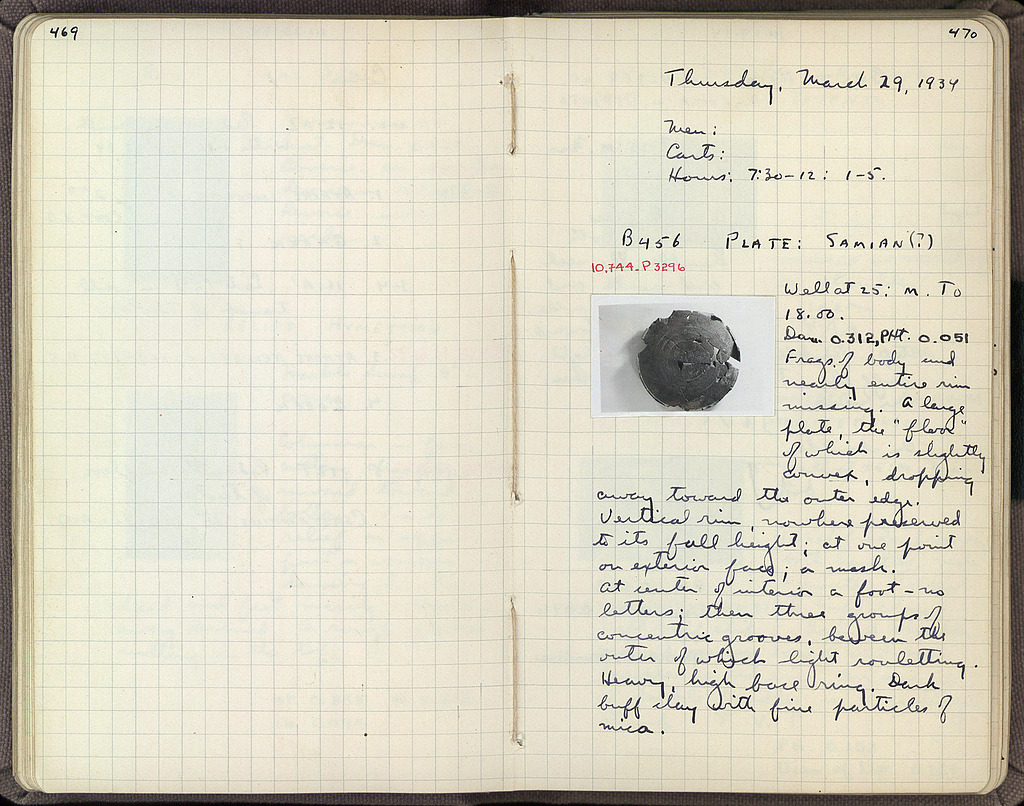 469
470
Thursday, March 29, 1934
Men:
Carts:
Hours: 7:30-12: 1-5.
B456 PLATE: SAMIAN(?)
10,744-P 3296
Well at 25: M. To
18.00.
Dam. 0.312, PHt. 0.051
Frags. of body and
nearly entire rim
missing. A large
plate, the "floor"
of which is slightly
convex, dropping
away toward the outer edge.
Vertical rim, nowhere preserved
to its full height; at one point
on exterior face; a mask.
At center of interior a foot - no
letters; then three groups of
concentric grooves, beween the
outer of which light rouletting.
Heavy, high base ring. Dark
buff clay with fine particles of
mica.